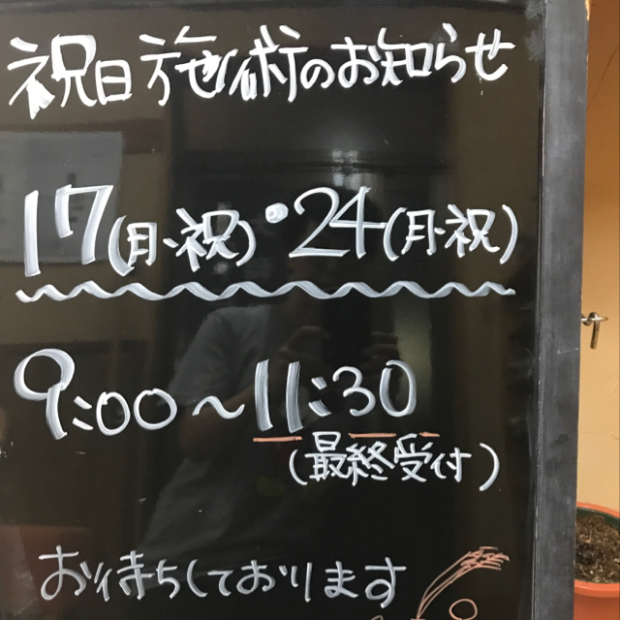 祝日施術のお知らせ
17(月・祝)・24(月・祝)
9:00～11:30
(最終受付)
お待ちしております